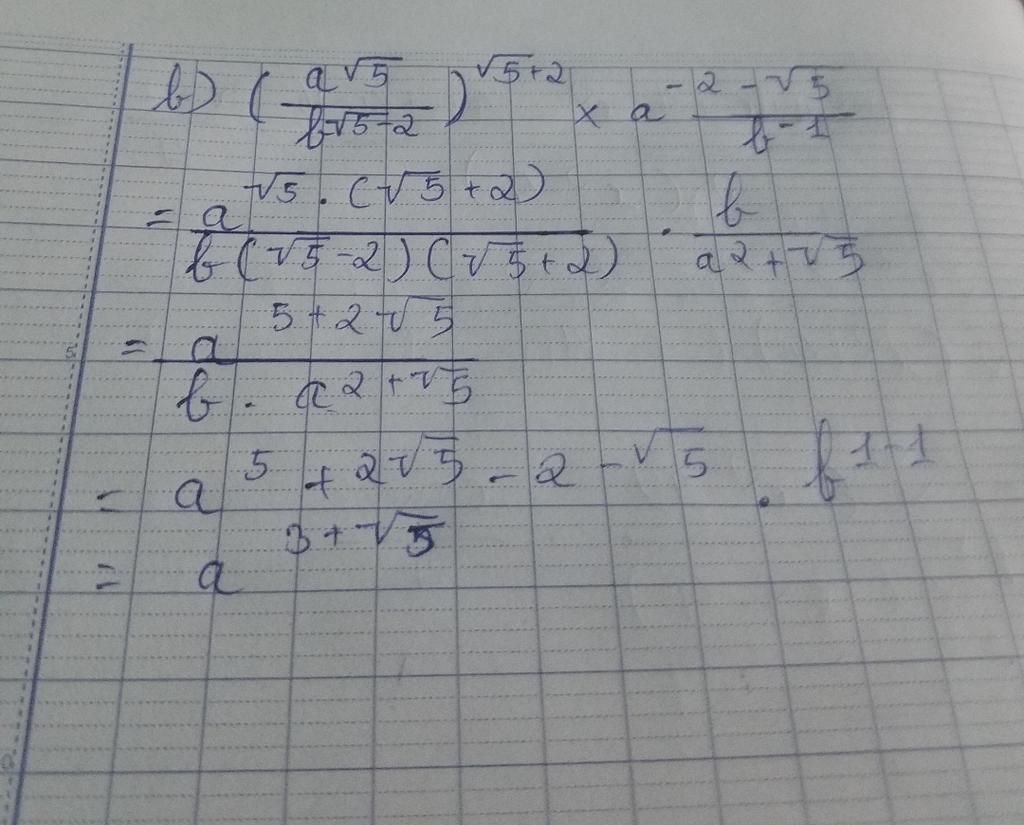 b) (a^√5 / b^√5-2)^√5+2 × a^-2-√5 / b^-1
= a^√5.(√5+2) / b(√5-2)(√5+2) . b / a^2+√5
= a^5+2√5 / b . a^2+√5
= a^5+2√5-2-√5 . b^1-1
= a^3+√5